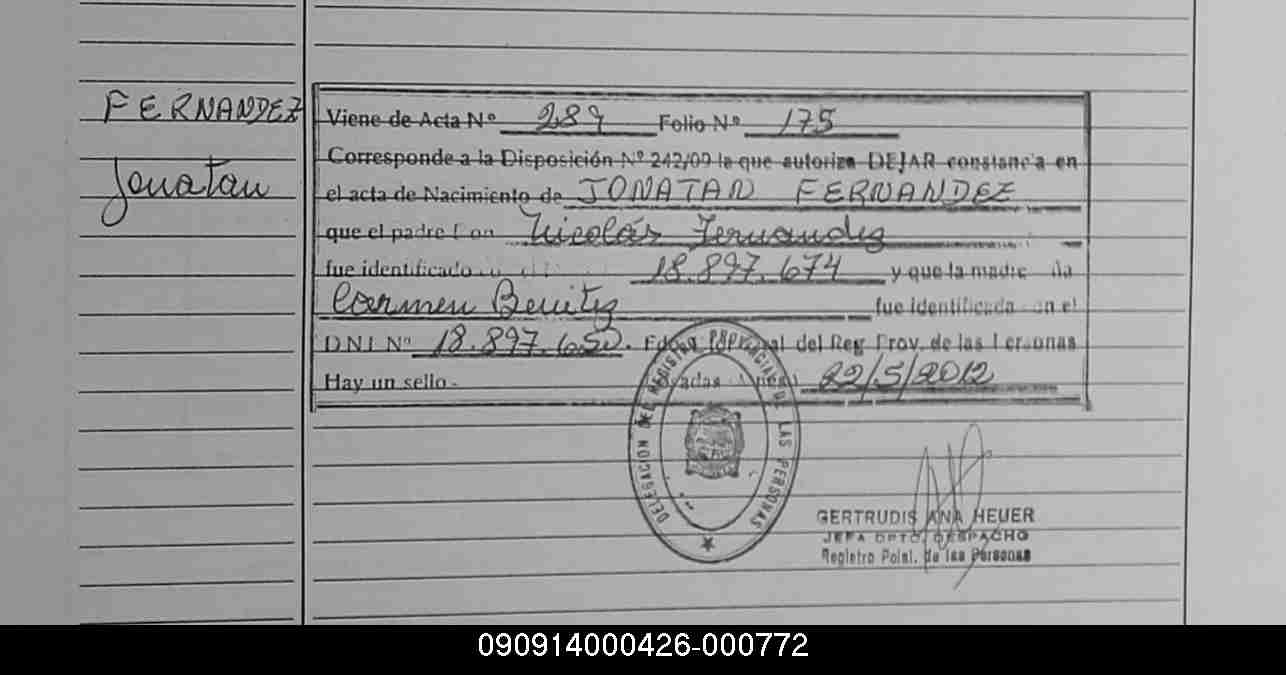 FERNANDEZ
Jonatan
Viene de Acta Nº 289 Folio Nº 175
Corresponde a la Disposición Nº 242/09 la que autoriza DEJAR constancia en
el acta de Nacimiento de JONATAN FERNANDEZ
que el padre Don Nicolás Fernandez
fue identificado 18.897.674 y que la madre
Carmen Benitez fue identificada con el
DNI Nº 18.897.650. Prov. de las Personas
Hay un sello.- 22/5/2012
DELEGACION DEL REGISTRO PROVINCIAL DE LAS PERSONAS
GERTRUDIS ANA HEUER
JEFA DPTO. DESPACHO
Registro Pcial. de las Personas
090914000426-000772